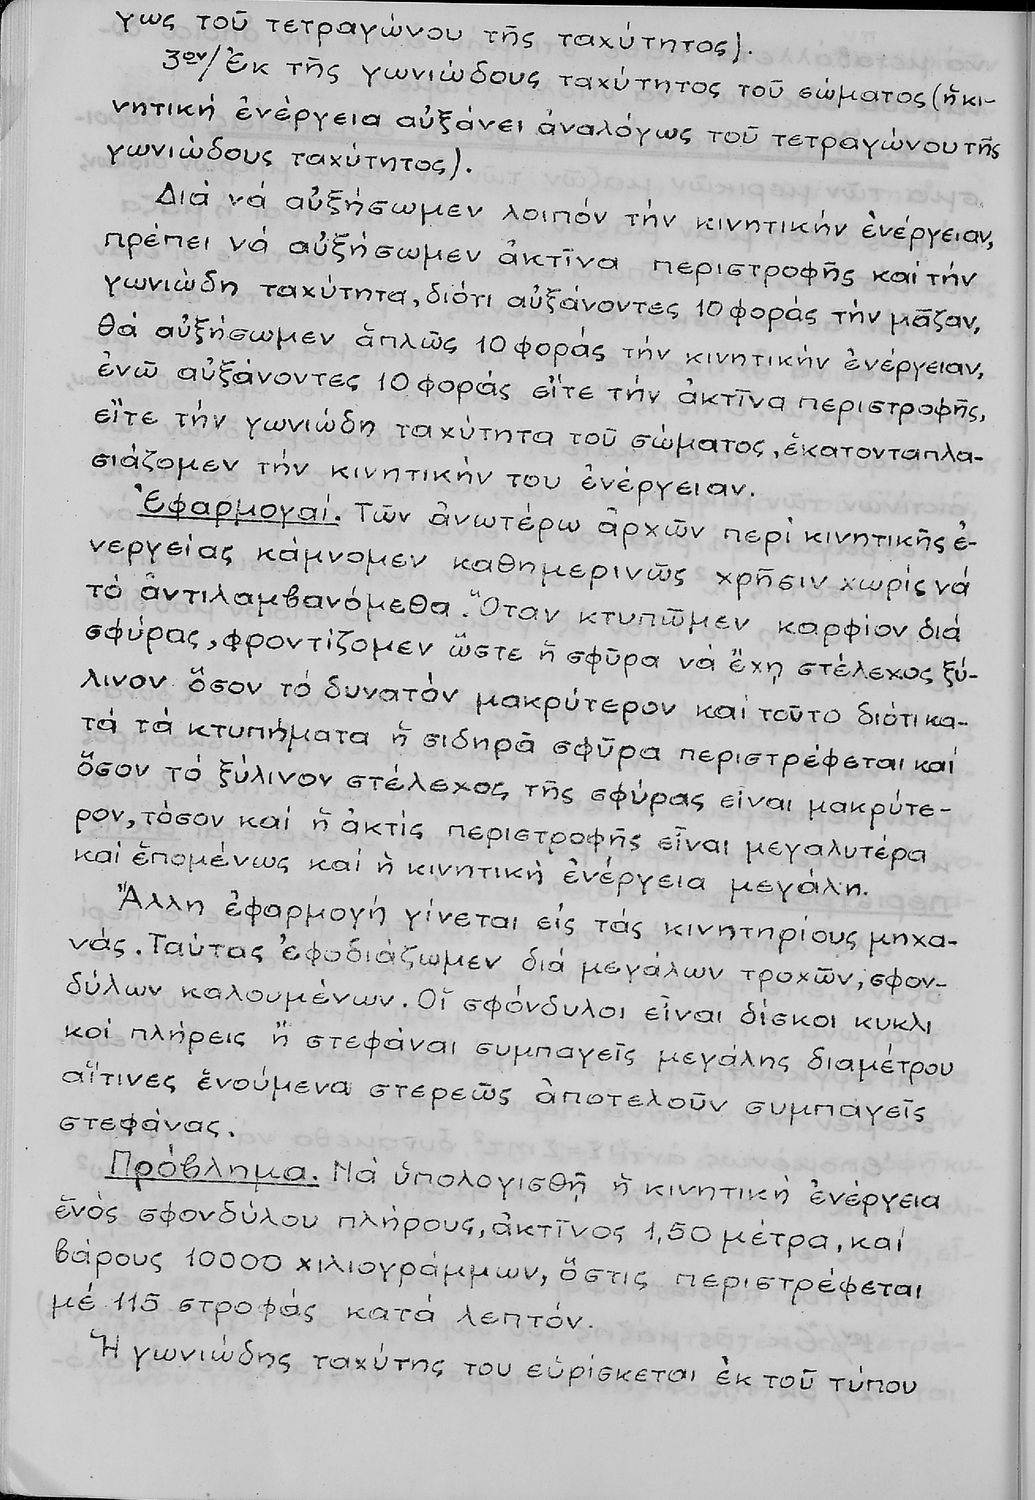 γως τοῦ τετραγώνου τῆς ταχύτητος).
3ον/ Ἐκ τῆς γωνιώδους ταχύτητος τοῦ σώματος (ἡ κι-
νητική ἐνέργεια αὐξάνει ἀναλόγως τοῦ τετραγώνου τῆς
γωνιώδους ταχύτητος).
Διά νά αὐξήσωμεν λοιπόν τήν κινητικήν ἐνέργειαν,
πρέπει νά αὐξήσωμεν ἀκτῖνα περιστροφῆς καί τήν
γωνιώδη ταχύτητα, διότι αὐξάνοντες 10 φοράς τήν μᾶζαν,
θά αὐξήσωμεν ἁπλῶς 10 φοράς τήν κινητικήν ἐνέργειαν,
ἐνῶ αὐξάνοντες 10 φοράς εἴτε τήν ἀκτῖνα περιστροφῆς,
εἴτε τήν γωνιώδη ταχύτητα τοῦ σώματος, ἑκατονταπλα-
σιάζομεν τήν κινητικήν του ἐνέργειαν.
Ἐφαρμογαί. Τῶν ἀνωτέρω ἀρχῶν περί κινητικῆς ἐ-
νεργείας κάμνομεν καθημερινῶς χρῆσιν χωρίς νά
τό ἀντιλαμβανόμεθα. Ὅταν κτυπῶμεν καρφίον διά
σφύρας, φροντίζομεν ὥστε ἡ σφῦρα νά ἔχῃ στέλεχος ξύ-
λινον ὅσον τό δυνατόν μακρύτερον καί τοῦτο διότι κα-
τά τά κτυπήματα ἡ σιδηρᾶ σφῦρα περιστρέφεται καί
ὅσον τό ξύλινον στέλεχος τῆς σφύρας εἶναι μακρύτε-
ρον, τόσον καί ἡ ἀκτίς περιστροφῆς εἶναι μεγαλυτέρα
καί ἑπομένως καί ἡ κινητική ἐνέργεια μεγάλη.
Ἄλλη ἐφαρμογή γίνεται εἰς τάς κινητηρίους μηχα-
νάς. Ταύτας ἐφοδιάζωμεν διά μεγάλων τροχῶν, σφον-
δύλων καλουμένων. Οἱ σφόνδυλοι εἶναι δίσκοι κυκλι
κοί πλήρεις ἤ στεφάναι συμπαγεῖς μεγάλης διαμέτρου
αἵτινες ἑνούμενα στερεῶς ἀποτελοῦν συμπαγεῖς
στεφάνας.
Πρόβλημα. Νά ὑπολογισθῇ ἡ κινητική ἐνέργεια
ἑνός σφονδύλου πλήρους, ἀκτῖνος 1,50 μέτρα, καί
βάρους 10000 χιλιογράμμων, ὅστις περιστρέφεται
μέ 115 στροφάς κατά λεπτόν.
Ἡ γωνιώδης ταχύτης του εὑρίσκεται ἐκ τοῦ τύπου